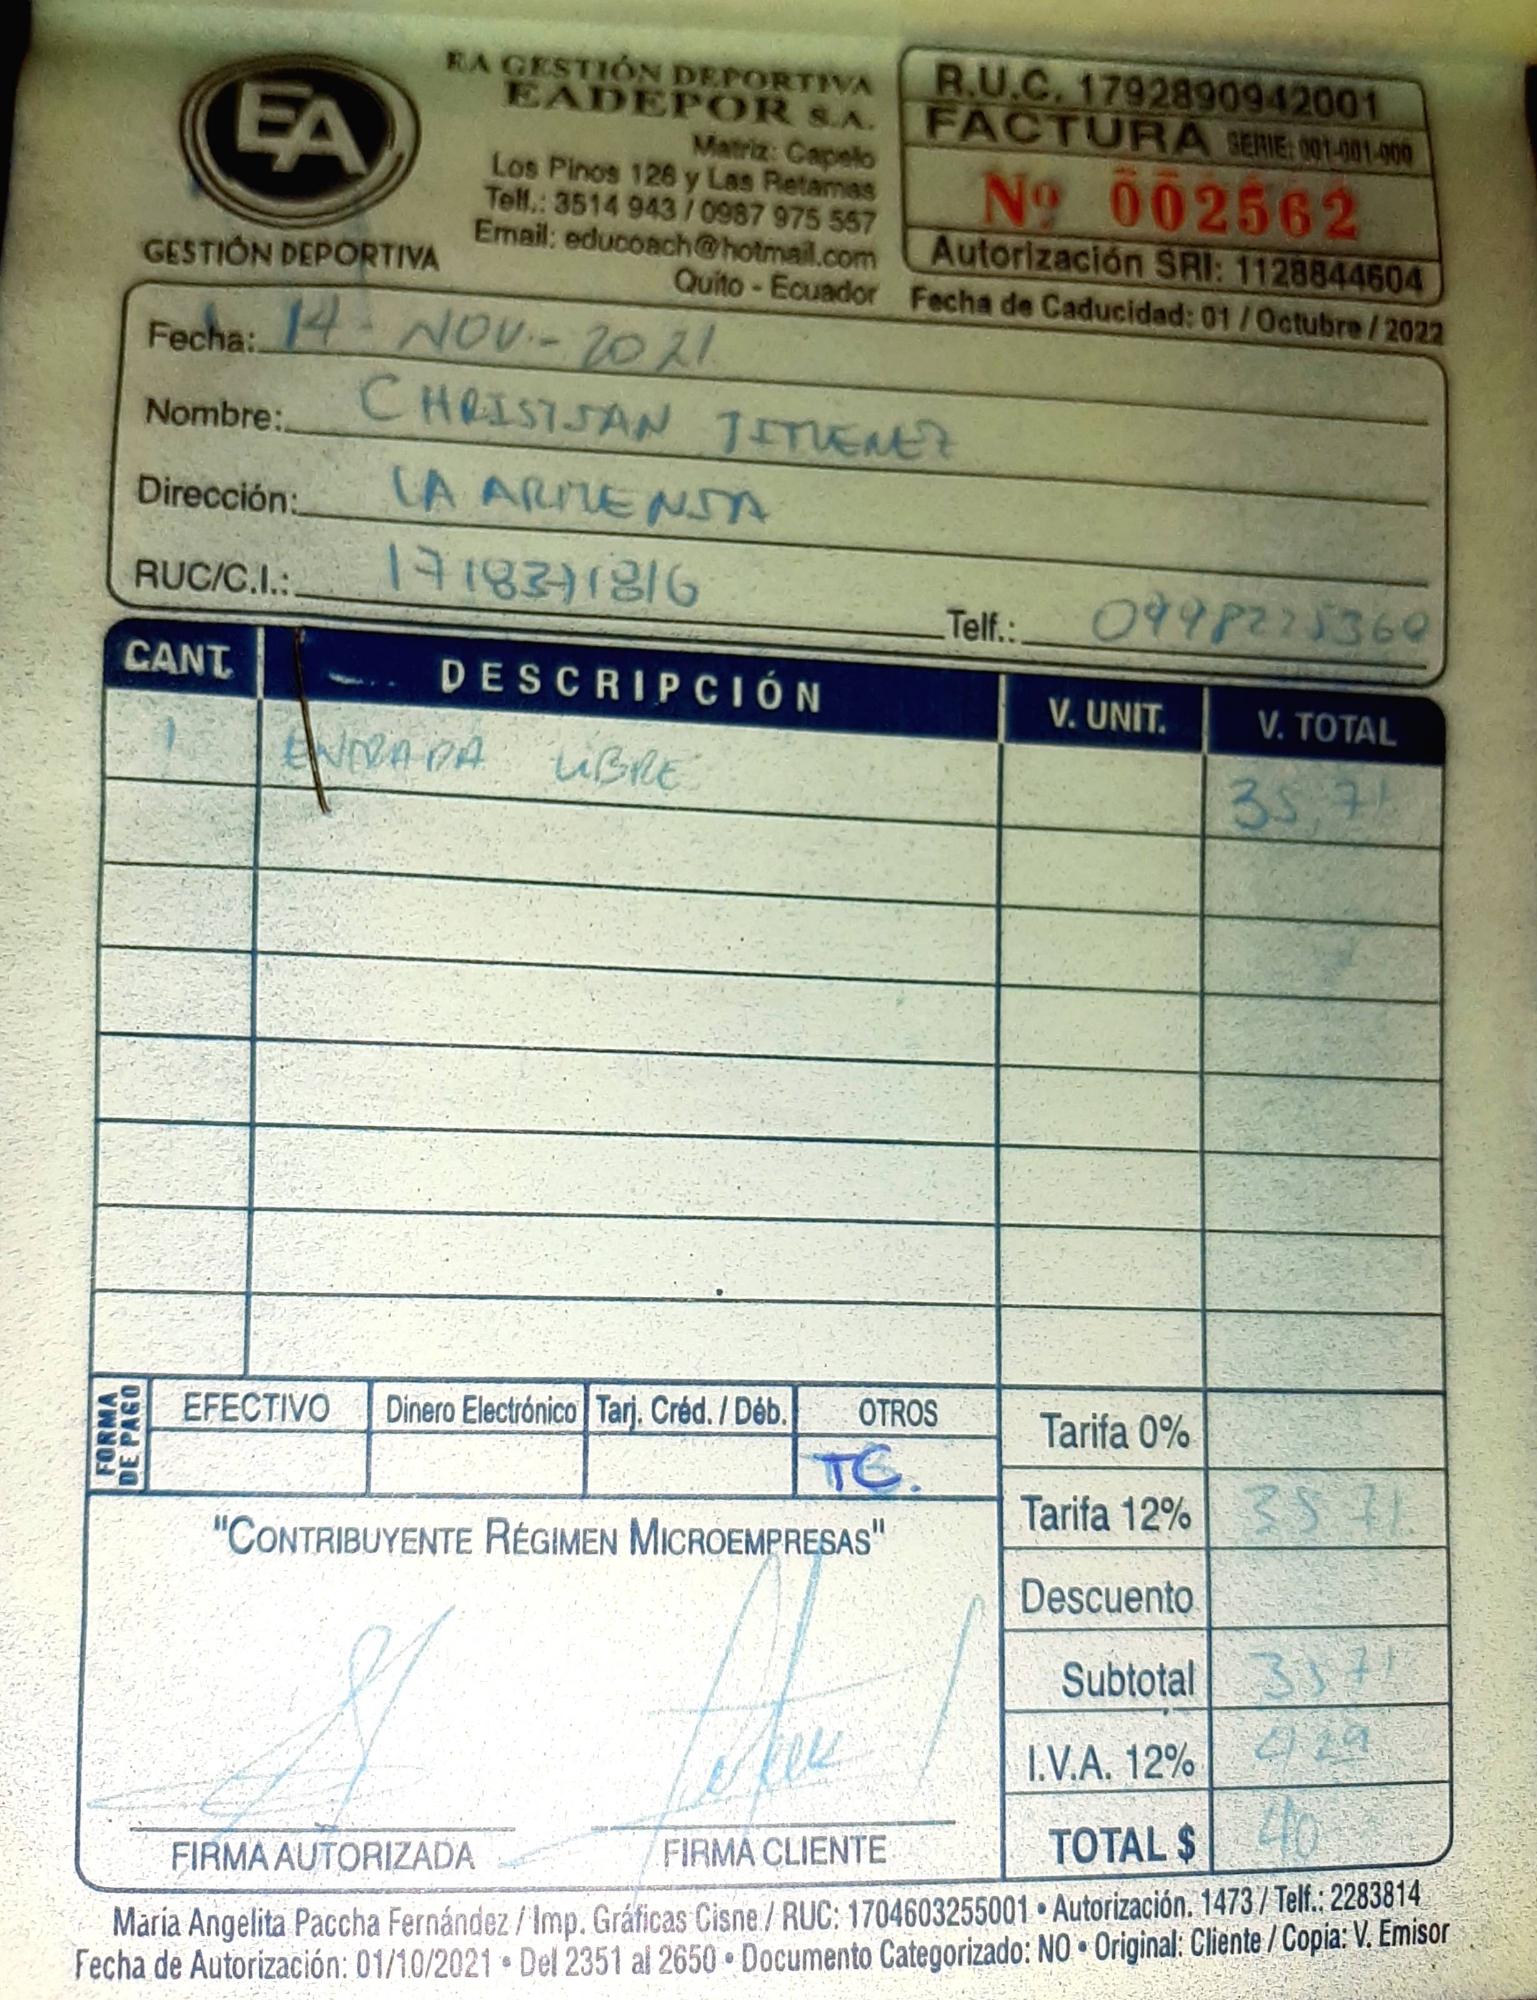 EA
GESTIÓN DEPORTIVA
EA GESTIÓN DEPORTIVA
EADEPOR S.A.
Matriz: Capelo
Los Pinos 126 y Las Retamas
Telf.: 3514 943 / 0987 975 557
Email: educoach@hotmail.com
Quito - Ecuador
R.U.C. 1792890942001
FACTURA SERIE: 001-001-000
Nº 002562
Autorización SRI: 1128844604
Fecha de Caducidad: 01 / Octubre / 2022
Fecha: 14 - NOV. - 2021
Nombre: CHRISTIAN JIMENEZ
Dirección: LA ARMENIA
RUC/C.I.: 1718371816 Telf.: 0998225360
CANT. DESCRIPCIÓN V. UNIT. V. TOTAL
1 ENTRADA LIBRE 35,71
FORMA DE PAGO
EFECTIVO Dinero Electrónico Tarj. Créd. / Déb. OTROS
TC.
Tarifa 0%
Tarifa 12% 35 71
Descuento
Subtotal 35 71
I.V.A. 12% 4 29
TOTAL $ 40
"CONTRIBUYENTE RÉGIMEN MICROEMPRESAS"
FIRMA AUTORIZADA FIRMA CLIENTE
María Angelita Paccha Fernández / Imp. Gráficas Cisne / RUC: 1704603255001 • Autorización. 1473 / Telf.: 2283814
Fecha de Autorización: 01/10/2021 • Del 2351 al 2650 • Documento Categorizado: NO • Original: Cliente / Copia: V. Emisor